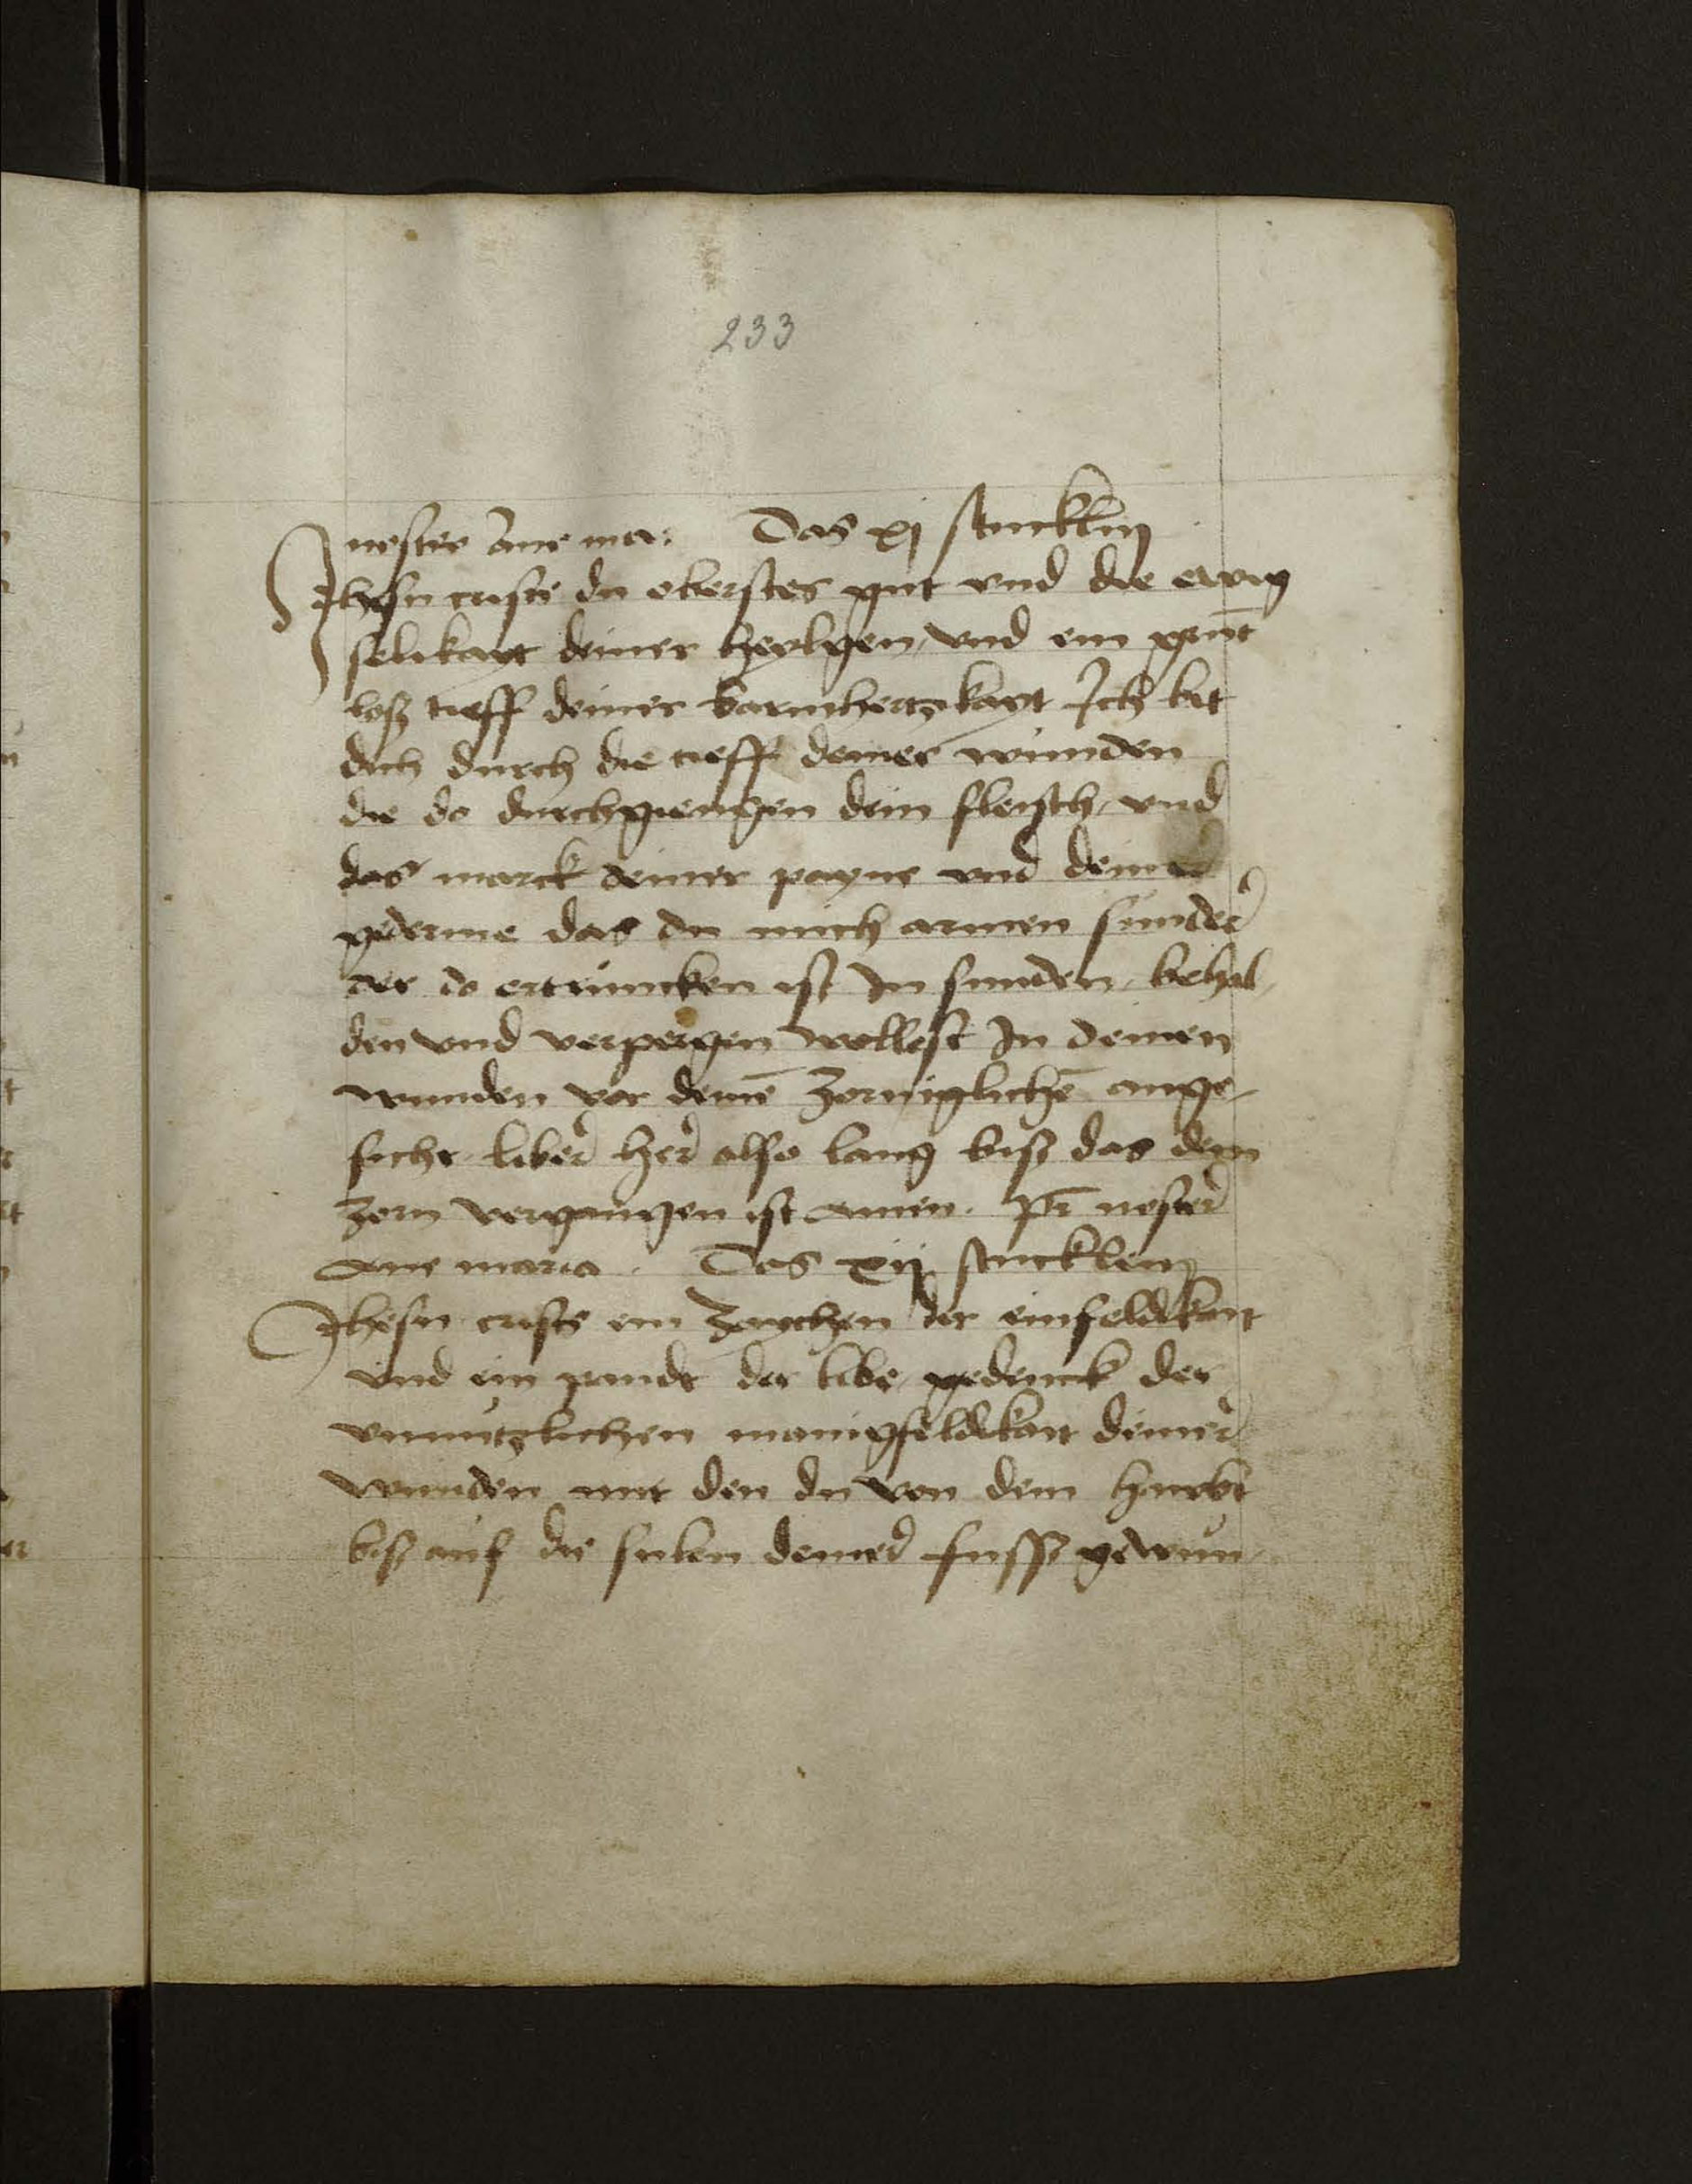 233
noster aue ma: Das xj stucklin
Ihesu criste du oberstes gut vnd die ewig
selikayt deiner heylgen, vnd ein grūt
losz tieff deiner barmhertzikayt Ich bit
dich durch die tieff deiner wunden
die do durchgiengen dein fleisch, vnd
das marck deiner payne vnd deiner
gederme das du mich armen sunder
der do ertruncken ist In sunden, behal,
den vnd verpergen wollest In deinen
wunden vor deinē zorniglichē ange,
sicht liber her also lang bisz das dein
zorn vergangen ist amen. pr̄ noster
Aue maria. Das xij stucklein
Ihesu criste ein zaychen der einfeldikait
vnd ein pandt der libe, gedenck der
vnnutzlichen manigfeldikait deiner
wunden mit den du von dem haubt
bisz auf die solen deiner fussz gewun,